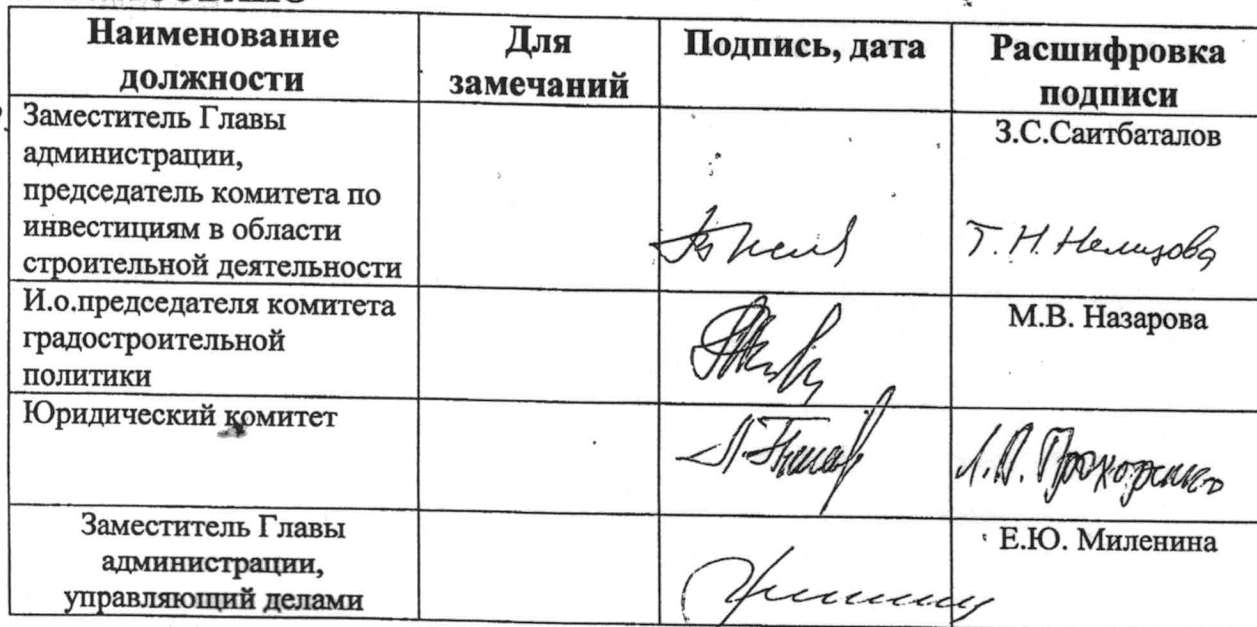 Наименование должности
Для замечаний
Подпись, дата
Расшифровка подписи
Заместитель Главы
администрации,
председатель комитета по
инвестициям в области
строительной деятельности
З.С.Саитбаталов
Т. Н.
И.о.председателя комитета
градостроительной
политики
М.В. Назарова
Юридический комитет
Заместитель Главы
администрации,
управляющий делами
Е.Ю. Миленина